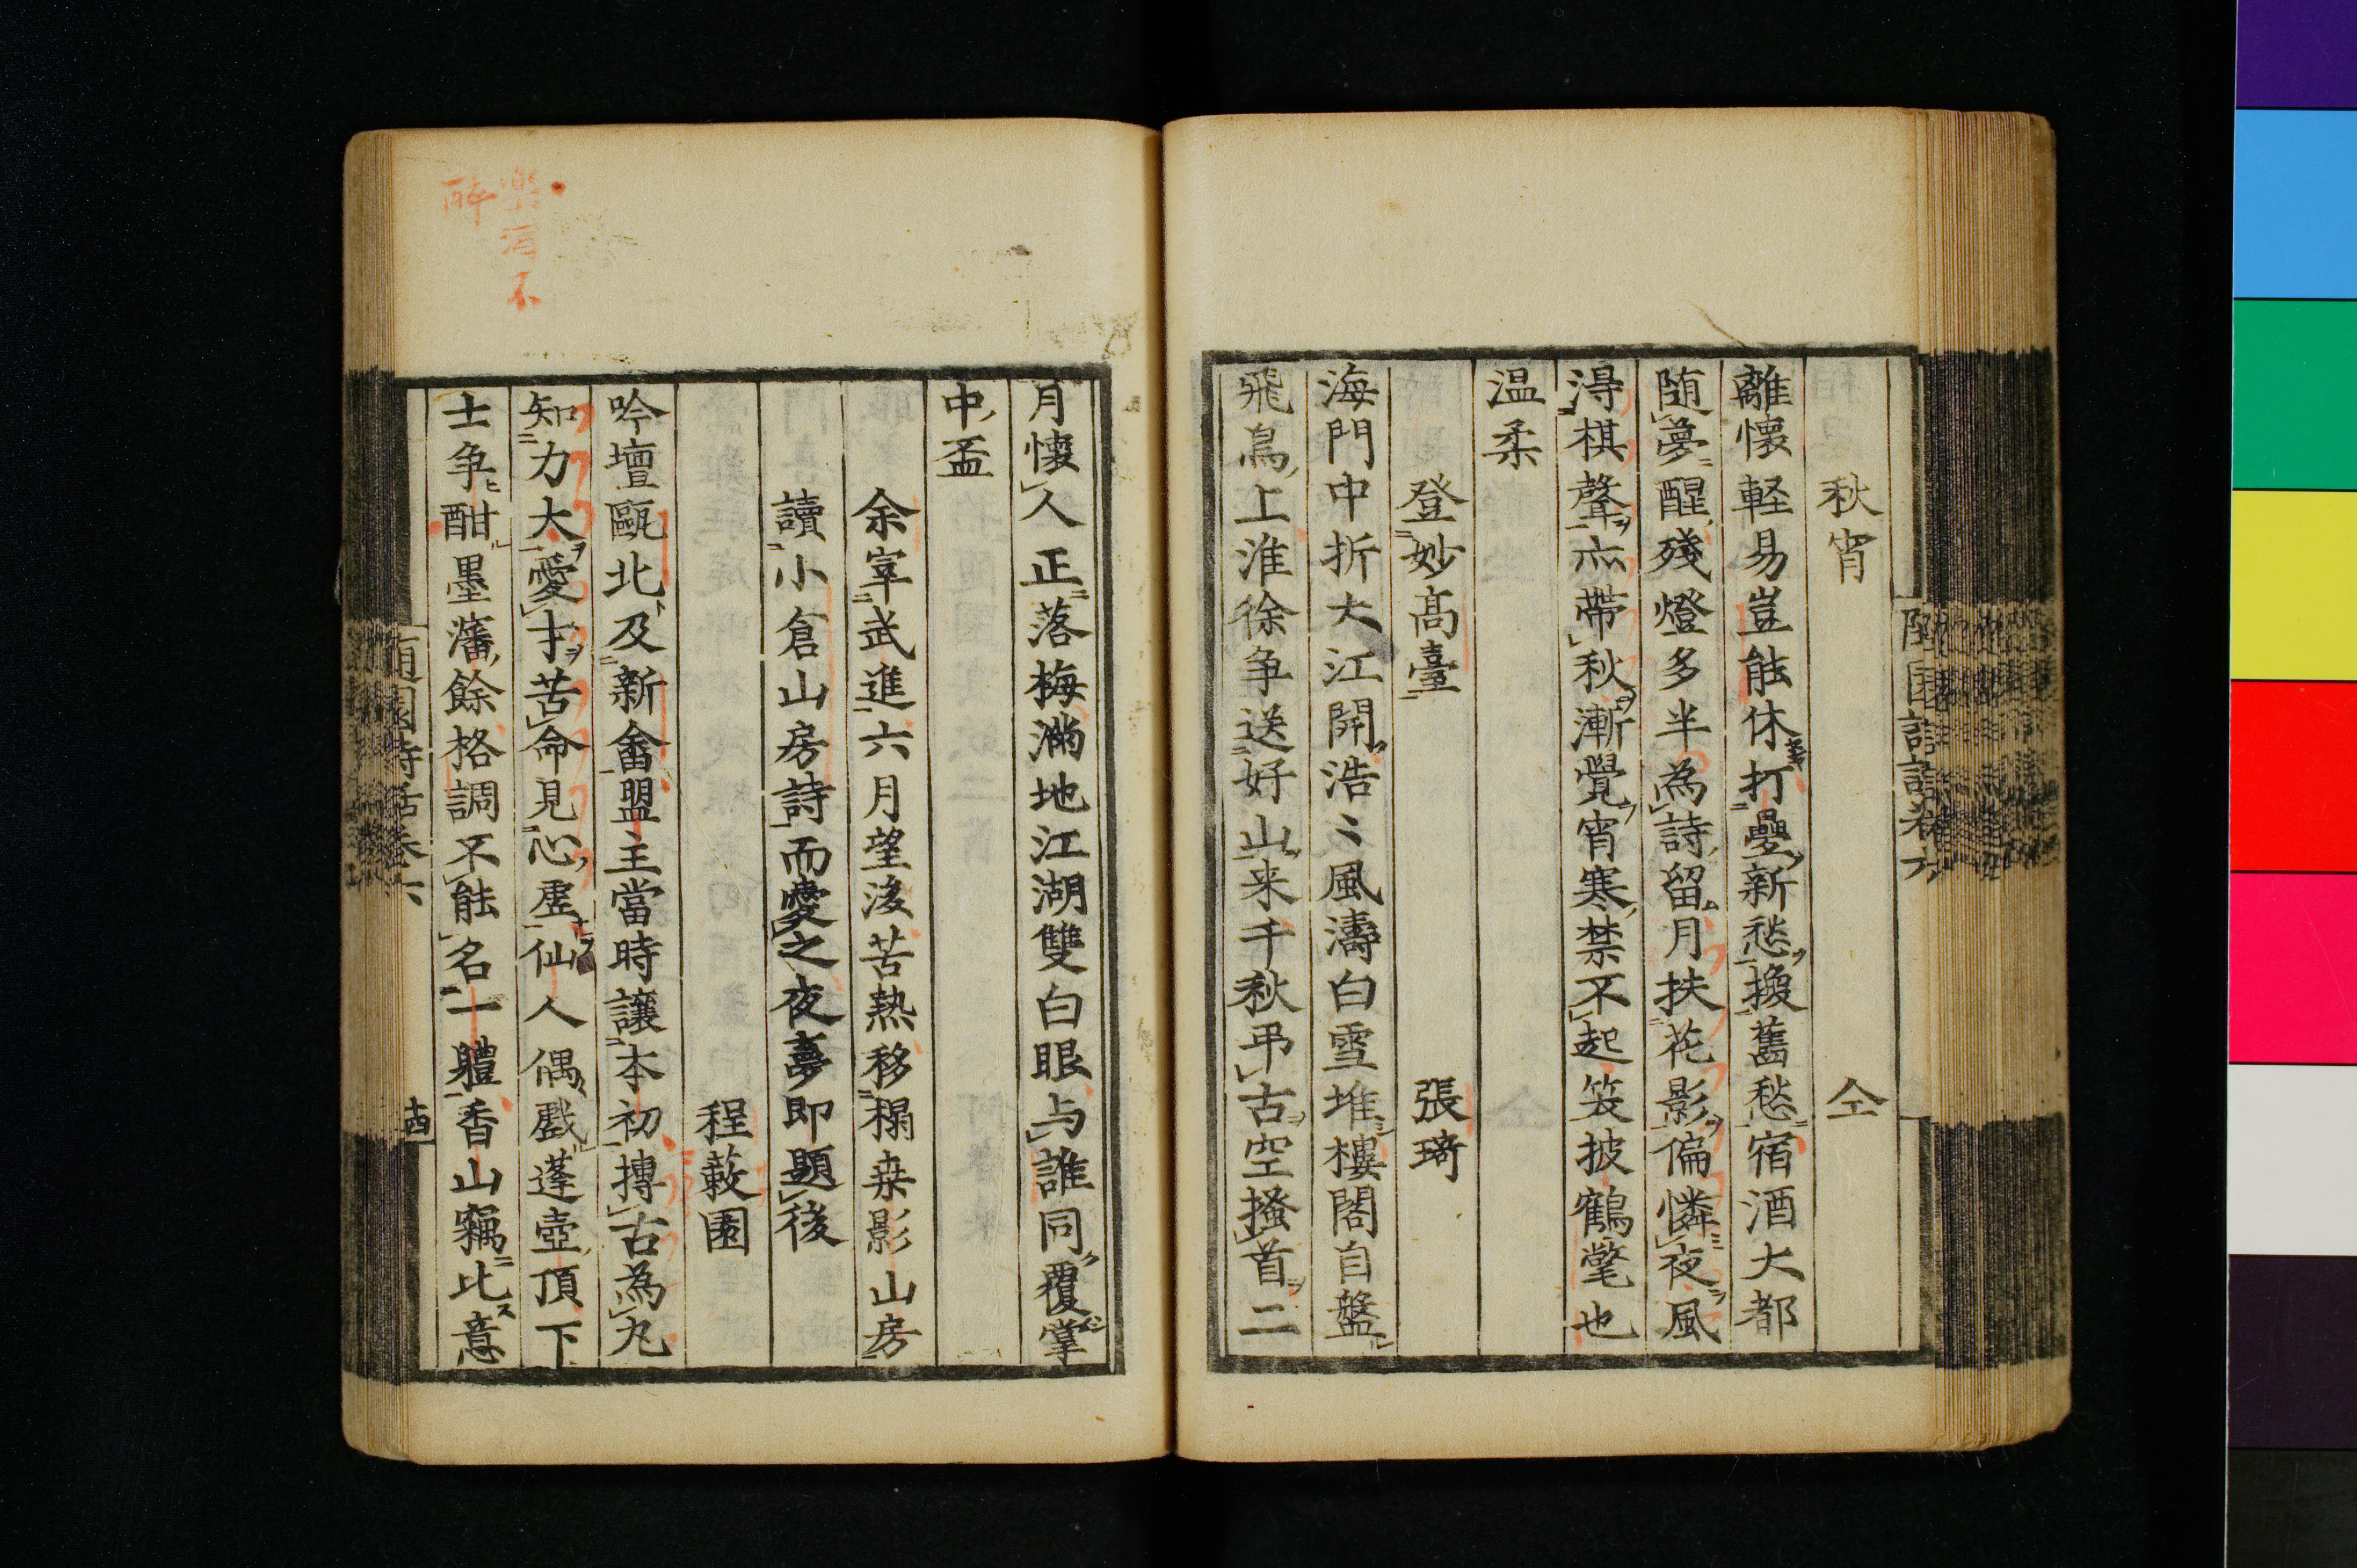 秋宵　仝
離懷軽易豈能休打疊新愁換舊愁宿酒大都
随夢醒殘燈多半為詩留月扶花影偏憐夜風
淂棋聲亦帶秋漸覺宵寒禁不起笑披鶴氅也
温柔
登妙高臺　張琦
海門中折大江開浩〻風濤白雪堆樓閣自盤
飛鳥上淮徐争送好山来千秋弔古空搔首二
月懷人正落梅滿地江湖雙白眼与誰同覆掌
中盃
余宰武進六月望後苦熱移榻桒影山房
讀小倉山房詩而愛之夜夢即題後
程蔌園
吟壇甌北及新畬盟主當時讓本初摶古為丸
知力大愛才苦命見心虛仙人偶戲蓬壺頂下
士争酣墨瀋餘格調不能名一體香山竊比意
随園詩話卷六
十四
樂酒不
醉